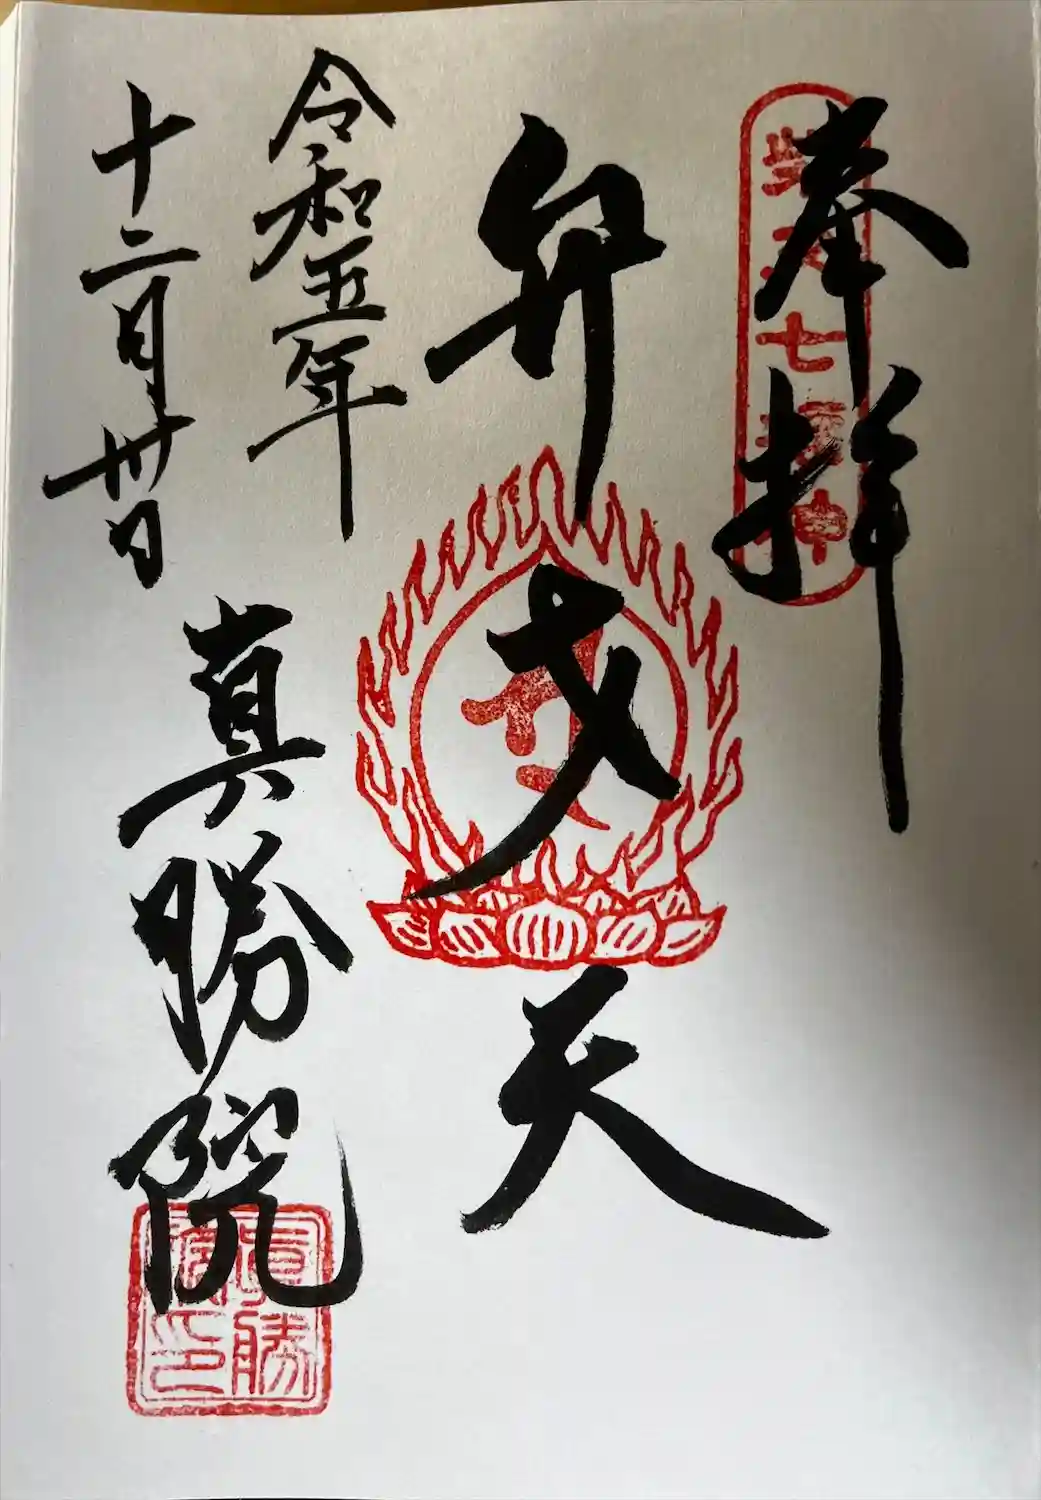 奉拝
柴又七福神
弁才天
令和五年
十二月卅日
真勝院
眞勝院印